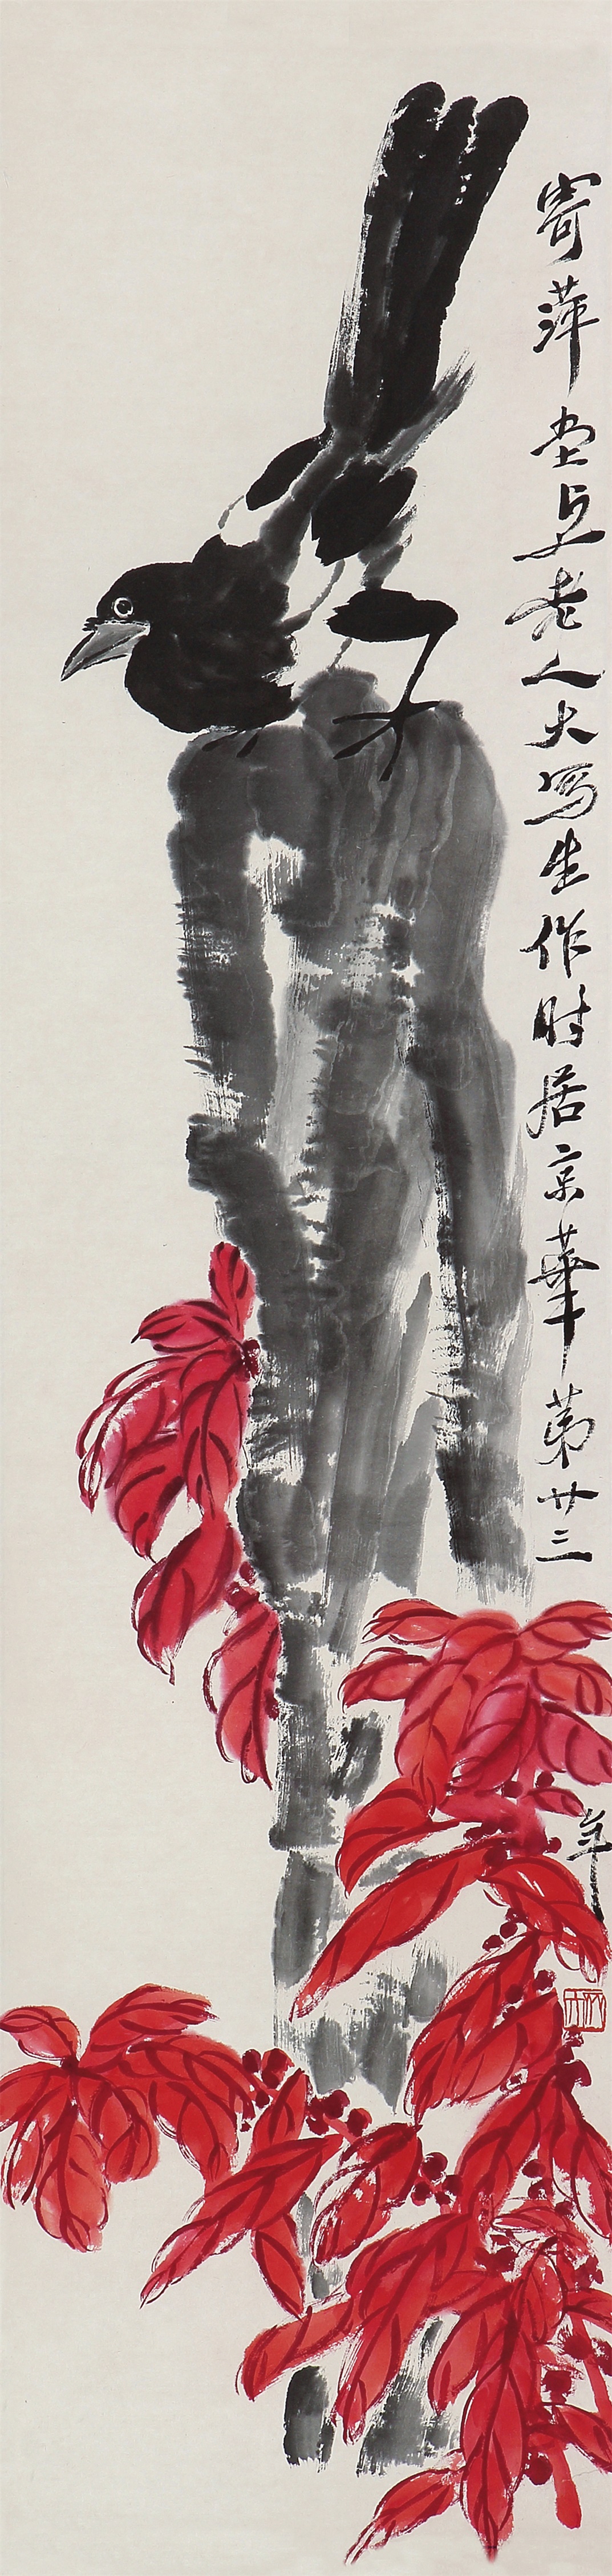 寄萍堂上老人大写生作时居京華苐廿三
年
木人